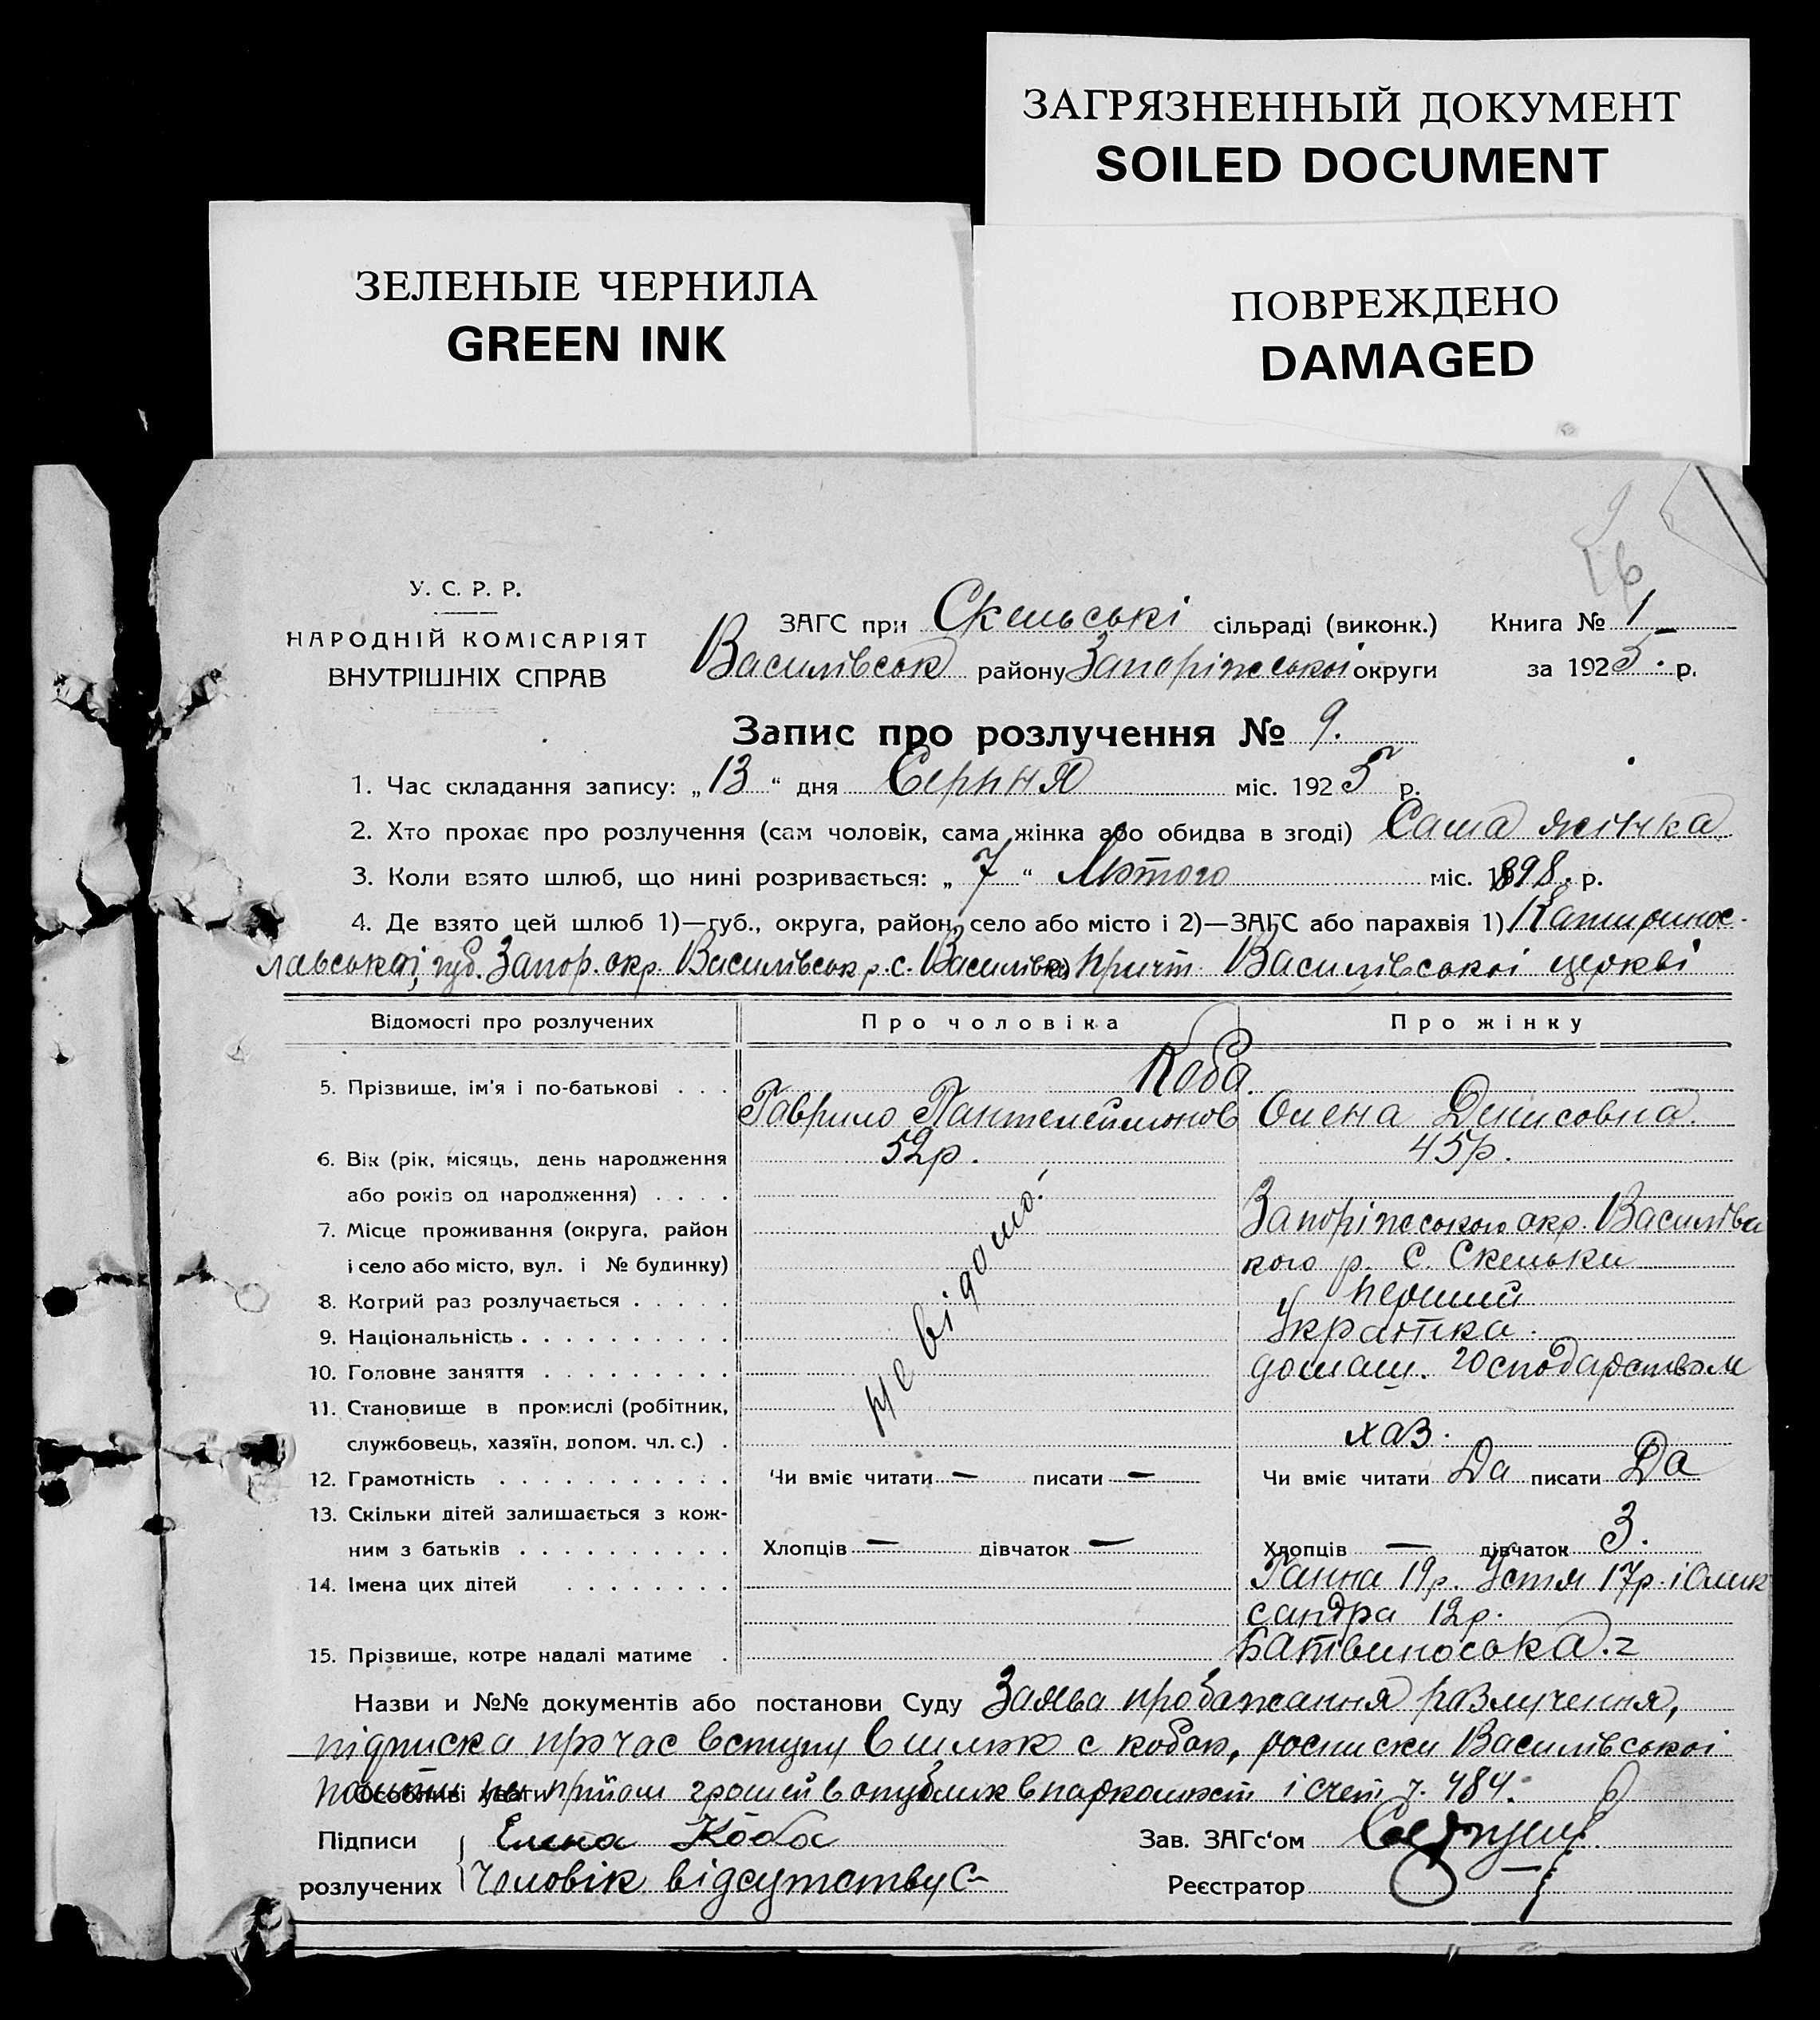 ЗАГРЯЗНЕННЫЙ ДОКУМЕНТ
SOILED DOCUMENT
ЗЕЛЕНЫЕ ЧЕРНИЛА
GREEN INK
ПОВРЕЖДЕНО
DAMAGED
У. С. Р. Р.
НАРОДНІЙ КОМІСАРІЯТ
ВНУТРІШНІХ СПРАВ
ЗАГС при Скельські сільраді (виконк.) Книга № 1
Василівськ району Запоріжської округи за 1925 р.
Запис про розлучення № 9.
1. Час складання запису: „13“ дня Серпня міс. 1925 р.
2. Хто прохає про розлучення (сам чоловік, сама жінка або обидва в згоді) Сама жінка
3. Коли взято шлюб, що нині розривається: „7“ Лютого міс. 1898. р.
4. Де взято цей шлюб 1)—губ., округа, район, село або місто і 2)—ЗАГС або парахвія 1) Катиринос-
лавської, губ. Запор. окр. Василівськ р. с. Василівка причт. Василівської церкві
Відомості про розлучених Про чоловіка Про жінку
5. Прізвище, ім'я і по-батькові . . . Коба
Гаврило Пантелеймонов Олена Денисовна.
6. Вік (рік, місяць, день народження 52р. 45р.
або років од народження) . . . .
7. Місце проживання (округа, район Запоріжського окр. Василівсь
і село або місто, вул. і № будинку) кого р. С. Скельки
8. Котрий раз розлучається . . . . . перший
не відомо!
9. Національність . . . . . . . . . . Українка.
10. Головне заняття . . . . . . . . . домаш. господарством
11. Становище в промислі (робітник,
службовець, хазяїн, допом. чл. с.) . хаз.
12. Грамотність . . . . . . . . . . . Чи вміє читати — писати — Чи вміє читати Да писати Да
13. Скільки дітей залишається з кож-
ним з батьків . . . . . . . . . . Хлопців — дівчаток — Хлопців — дівчаток 3.
14. Імена цих дітей . . . . . . . . Ганна 19р. Устя 17р. і Олик
сандра 12р.
15. Прізвище, котре надалі матиме .
Назви и №№ документів або постанови Суду Заява про бажання разлучення,
підписка про час вступу в шлюж с кобою, росписки Василівської
Особливі уваги прийом грошей в опублик в наркомюст і счет ч. 484.
Підписи Елена Коба Зав. ЗАГс'ом
розлучених Чоловік відсутствує Реєстратор